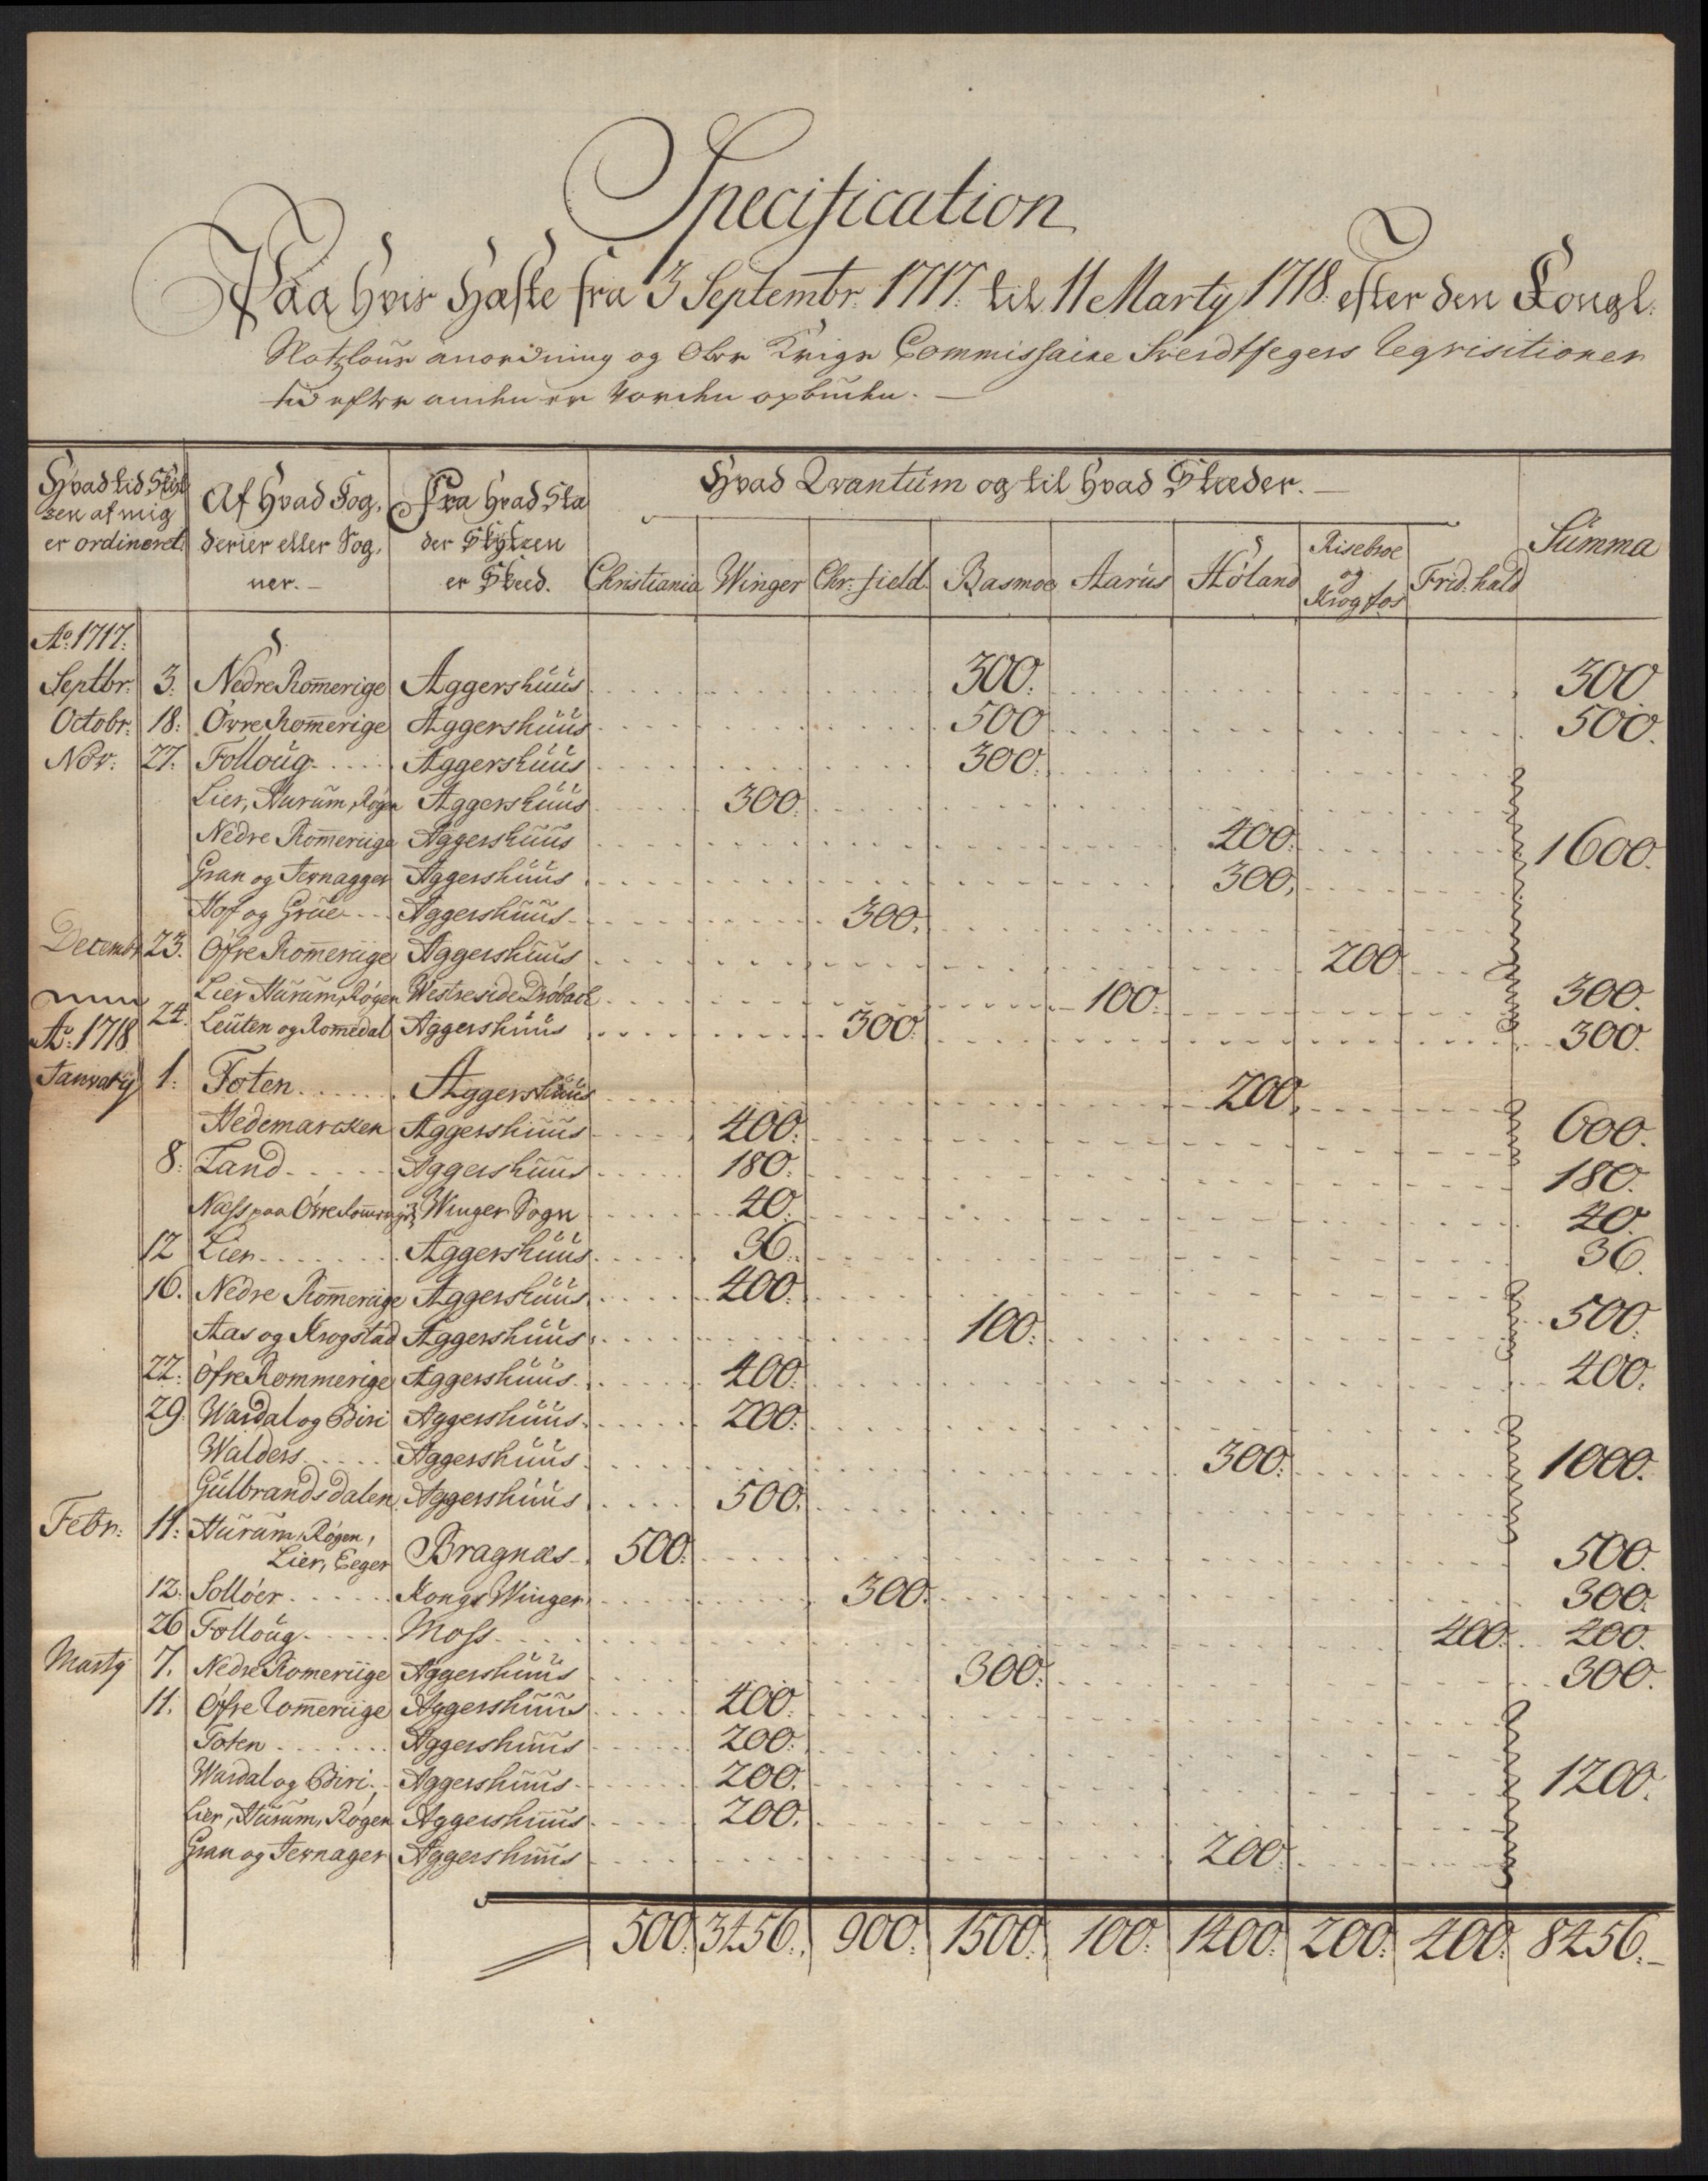 Specification
Paa hvis Hæste fra 3 Septembr. 1717. til 11 Marty 1718. efter den Kongl.
Slotzlous anordning og Ober Krigs Commissaire Sverdtfegers Reqvisitioner
tid efter anden er vorden opbuden. —
Hvad tid Skyt
zen af mig
er ordineret.
Af Hvad Fog,
derier eller Sog,
ner. —
Fra Hvad Stæ
der Skytzen
er Skeed.
Hvad Qvantum og til hvad Stæder. —
Christiania Winger Chr: field. Basmoe Aarus Höland Risebroe og Krogfos Frid: hald Summa
Ao. 1717.
Septbr. 3. Nedre Romerige Aggershuus 300. 300
Octobr. 18. Övre Romerige Aggershuus 500 500.
Nov: 27. Folloug Aggershuus 300.
Lier, Hurum, Rögen Aggershuus 300.
Nedre Romeriige Aggershuus 400. 1600.
Gran og Jernagger Aggershuus 300.
Hof og Grue Aggershuus 300.
Decembr 23. Öfre Romeriige Aggershuus 200
Lier Hurum, Rögen Westre side Dröbach 100. 300.
24. Leuten og Romedal Aggershuus 300. 300.
Ao. 1718
Januarij 1. Toten Aggershuus 200.
Hedemarcken Aggershuus 400. 600.
8. Land Aggershuus 180. 180.
Næss paa Övre Romerige Winger Sogn 40. 40.
12 Lier Aggershuus 36. 36.
16. Nedre Romeriige Aggershuus 400.
Aas og Krogstad Aggershuus 100. 500.
22. Öfre Rommerige Aggershuus 400. 400.
29. Wardal og Biri Aggershuus 200.
Walders Aggershuus 300. 1000.
Gulbrandsdalen Aggershuus 500.
Febr: 11. Hurum, Rögen,
Lier, Eeger Bragnæs 500. 500.
12. Sollöer Kongs Winger 300. 300.
26 Folloug Moss 400. 400.
Martij 7. Nedre Romeriige Aggershuus 300. 300.
11. Öfre Romeriige Aggershuus 400.
Toten Aggershuus 200.
Wardal og Biri Aggershuus 200. 1200.
Lier, Hurum, Rögen Aggershuus 200.
Gran og Jernager Aggershuus 200.
500. 3456. 900. 1500. 100. 1400. 200. 400. 8456. —